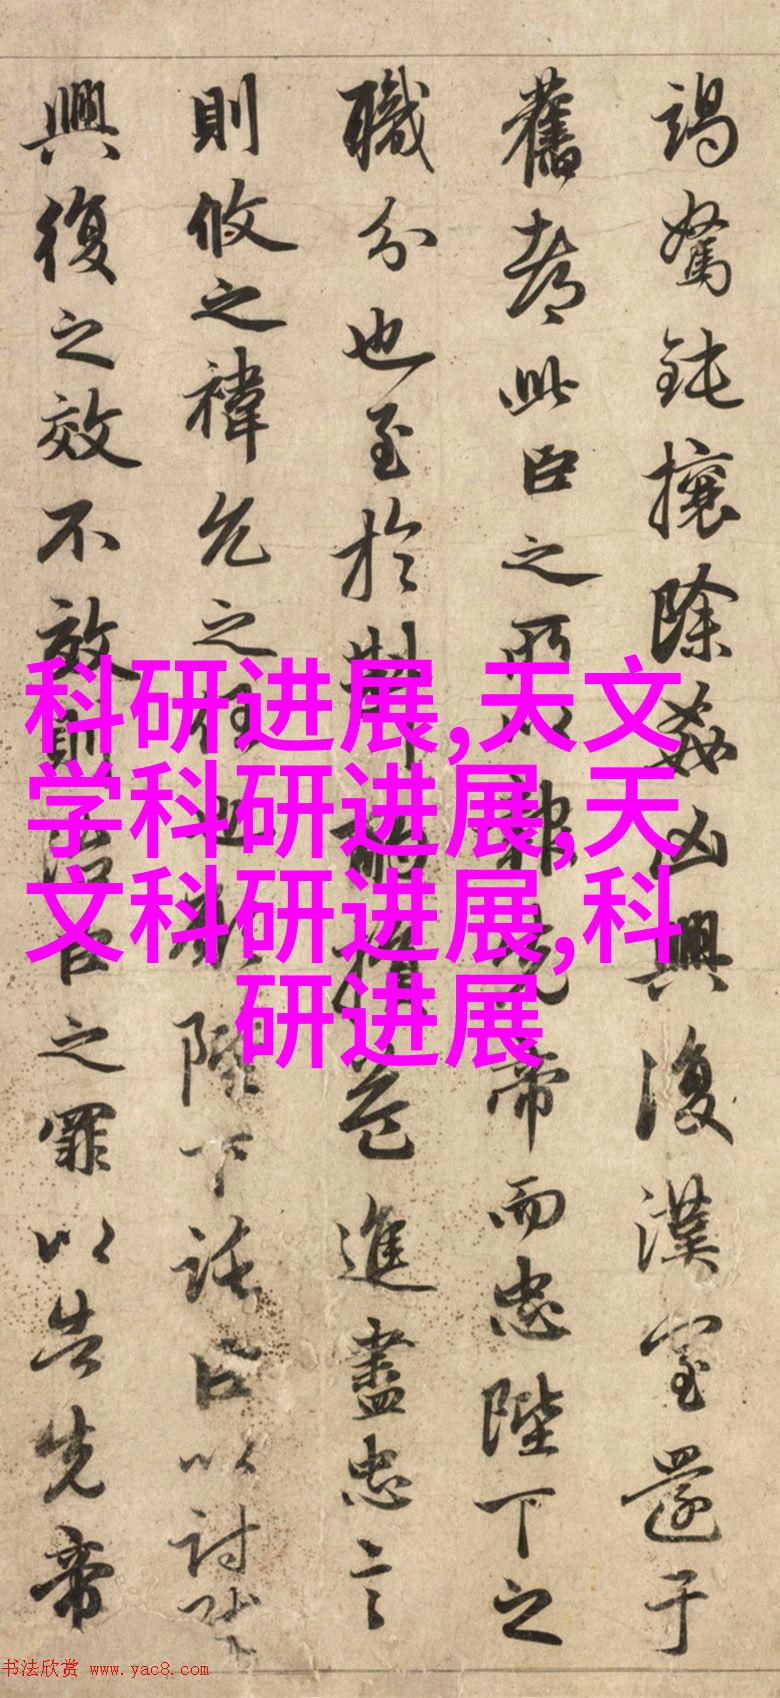 竭駑鈍攘除姦凶興復漢室還于
舊都此臣之所以報先帝而忠陛下之
職分也至於斟酌損益進盡忠言
則攸之禕允之任也願陛下託臣以討賊
興復之效不效則治臣之罪以告先帝
科研进展,天文
学科研进展,天
文科研进展,科
研进展
书法欣赏 www.yac8.com